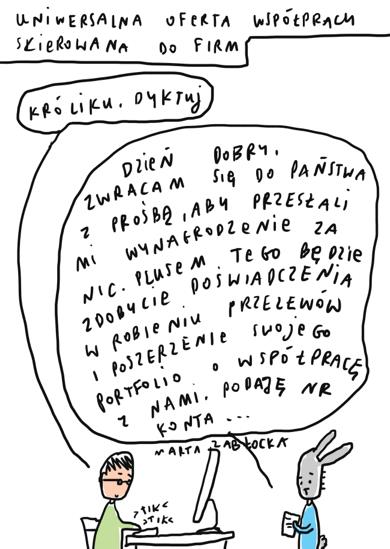 UNIWERSALNA OFERTA WSPÓŁPRACY
SKIEROWANA DO FIRM
KRÓLIKU, DYKTUJ
DZIEŃ DOBRY,
ZWRACAM SIĘ DO PAŃSTWA
Z PROŚBĄ, ABY PRZESŁALI
MI WYNAGRODZENIE ZA
NIC. PLUSEM TEGO BĘDZIE
ZDOBYCIE DOŚWIADCZENIA
W ROBIENIU PRZELEWÓW
I POSZERZENIE SWOJEGO
PORTFOLIO O WSPÓŁPRACĘ
Z NAMI. PODAJĘ NR
KONTA...
MARTA ZABŁOCKA
STIKC
STIKC